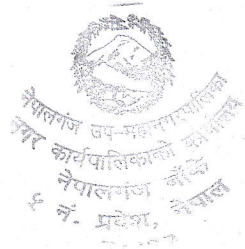 नेपालगंज उप-महानगरपालिका
नगर कार्यपालिकाको कार्यालय
नेपालगञ्ज, बाँके
५ नं. प्रदेश, नेपाल